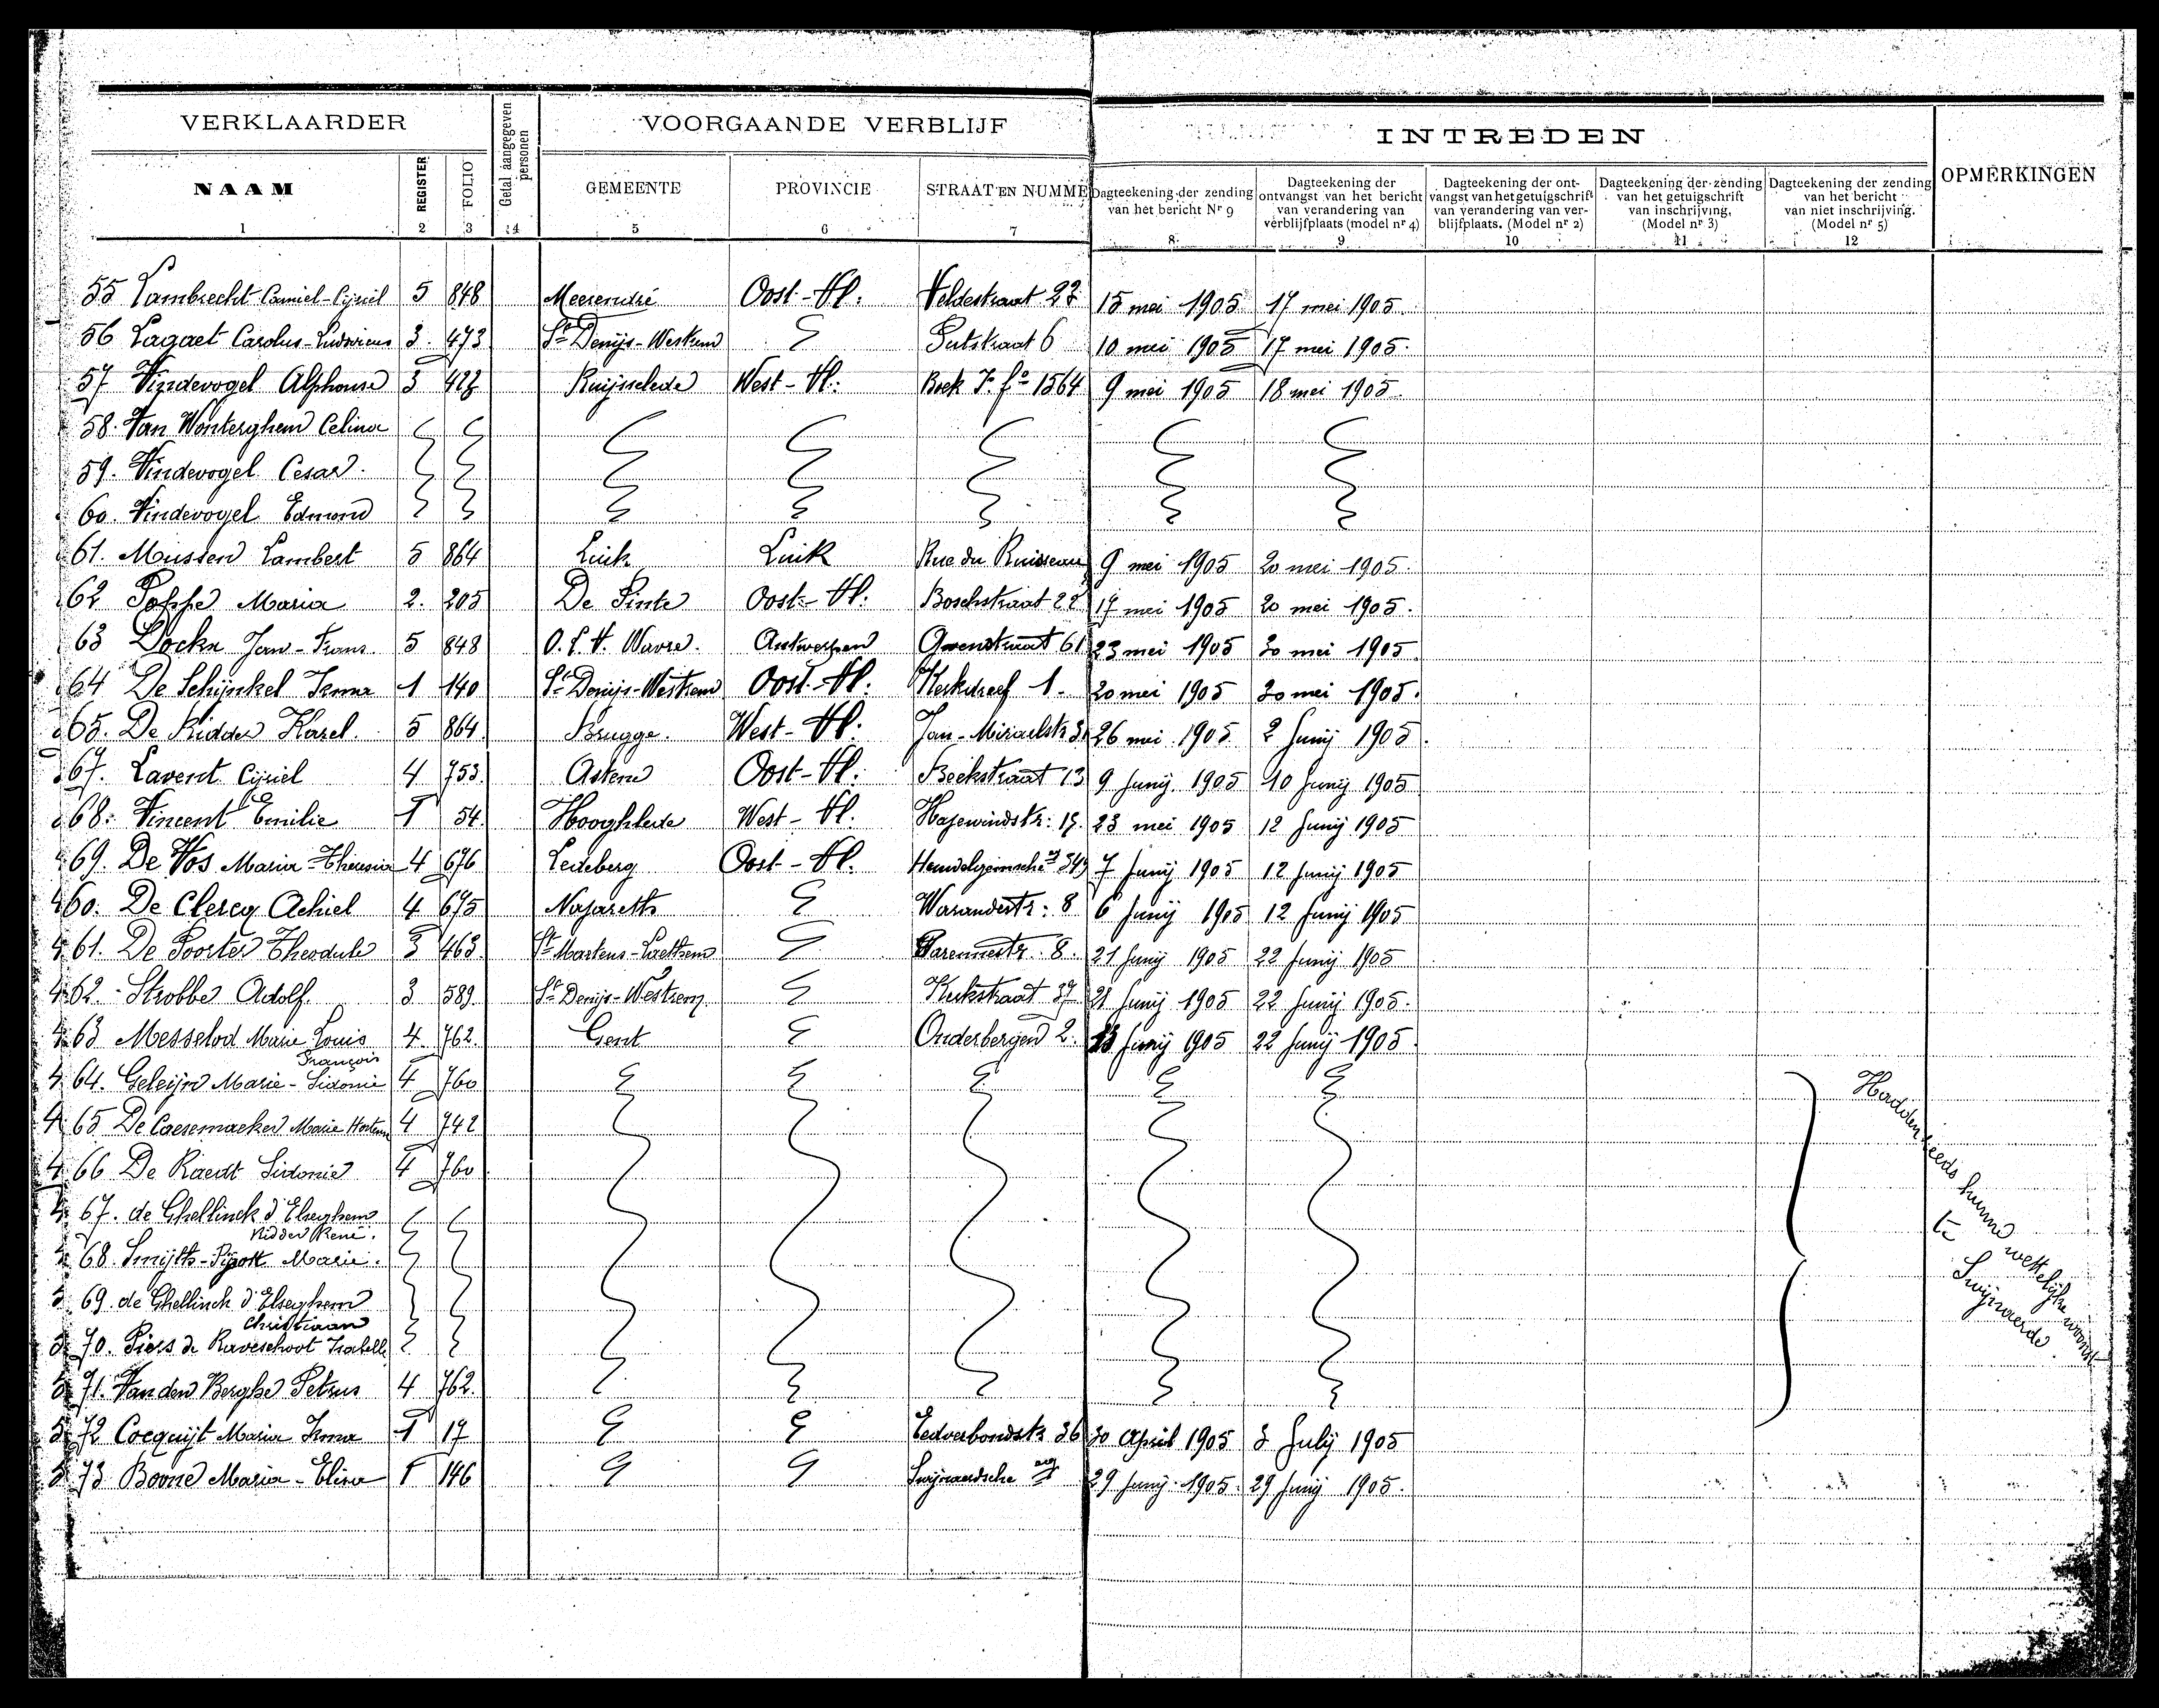 VERKLAARDER
Getal aangegeven personen
VOORGAANDE VERBLIJF
INTREDEN
OPMERKINGEN
NAAM
REGISTER
FOLIO
GEMEENTE
PROVINCIE
STRAAT EN NUMME
Dagteekening der zending van het bericht Nr 9
Dagteekening der ontvangst van het bericht van verandering van verblijfplaats (model nr 4)
Dagteekening der ont-vangst van het getuigschrift van verandering van ver-blijfplaats. (Model nr 2)
Dagteekening der zending van het getuigschrift van inschrijving. (Model nr 3)
Dagteekening der zending van het bericht van niet inschrijving. (Model nr 5)
1 2 3 4 5 6 7 8 9 10 11 12
55 Lambrecht Camiel-Cyriel 5 848 Meerendré Oost-Vl: Veldestraat 22 15 mei 1905 17 mei 1905.
56 Lagaet Carolus-Ludovicus 3. 473 St Denijs-Westrem Putstraat 6 10 mei 1905 17 mei 1905.
57 Vindevogel Alphonse 3 423 Ruijsselede West-Vl: Boek 7 fo 1564 9 mei 1905 18 mei 1905.
58. Van Wonterghem Celina
59. Vindevogel Cesar.
60. Vindevogel Edmond
61. Mussen Lambert 5 864 Luik Luik Rue du Ruisseau 9 mei 1905 20 mei 1905.
62 Poppe Maria 2. 205 De Pinte Oost-Vl: Boschstraat 22 17 mei 1905 20 mei 1905.
63 Dockx Jan-Frans. 5 848 O.L.V. Wavre. Antwerpen 61 23 mei 1905 30 mei 1905.
64 De Schijnkel Irma 1 140 St Denijs-Westrem Oost-Vl: Kerkdreef 1. 20 mei 1905 30 mei 1905.
65. De Ridder Karel. 5 864. Brugge. West-Vl: Jan-Miraelstr 26 mei 1905 2 Junij 1905.
67. Lavent Cyriel 4 753. Astene Oost-Vl: Beekstraat 13 9 Junij 1905 10 Junij 1905
68. Vincent Emilie 1 54. Hooghlede West-Vl. Hazewindstr: 15. 23 mei 1905 12 Junij 1905
69. De Vos Maria-Theresia 4 676 Ledeberg Oost-Vl. 7 Junij 1905 12 Junij 1905
60. De Clercq Achiel 4 675 Nazareth Warandestr: 8 6 Junij 1905 12 Junij 1905
61. De Poorter Theodule 3 463. St Martens-Laethem Varennestr. 8. 21 Junij 1905 22 Junij 1905
62. Strobbe Adolf. 3 589. St Denijs-Westrem Kerkstraat 37 21 Junij 1905 22 Junij 1905.
63 Messelod Marie Louis François 4. 762. Gent Onderbergen 2. 13 Junij 1905 22 Junij 1905.
64. Geleijn Marie-Sidonie 4 760
65 De Caesemaeker Marie Hortense 4 742
66 De Raedt Sidonie 4 760
67. de Ghellinck d'Elseghem Ridder René.
68. Smijth-Pigott Marie.
69. de Ghellinck d'Elseghem Christiaan
70. Piers de Raveschoot Isabelle
71. Van den Berghe Petrus 4 762.
Hadden reeds hunne wettelijke woonst te Swijnaerde.
72 Cocquijt Maria Irma 1 17 Eedverbondstr 36 30 April 1905 3 Julij 1905
73 Boone Maria-Elina 1 146 Swijnaerdsche 29 Junij 1905. 29 Junij 1905.